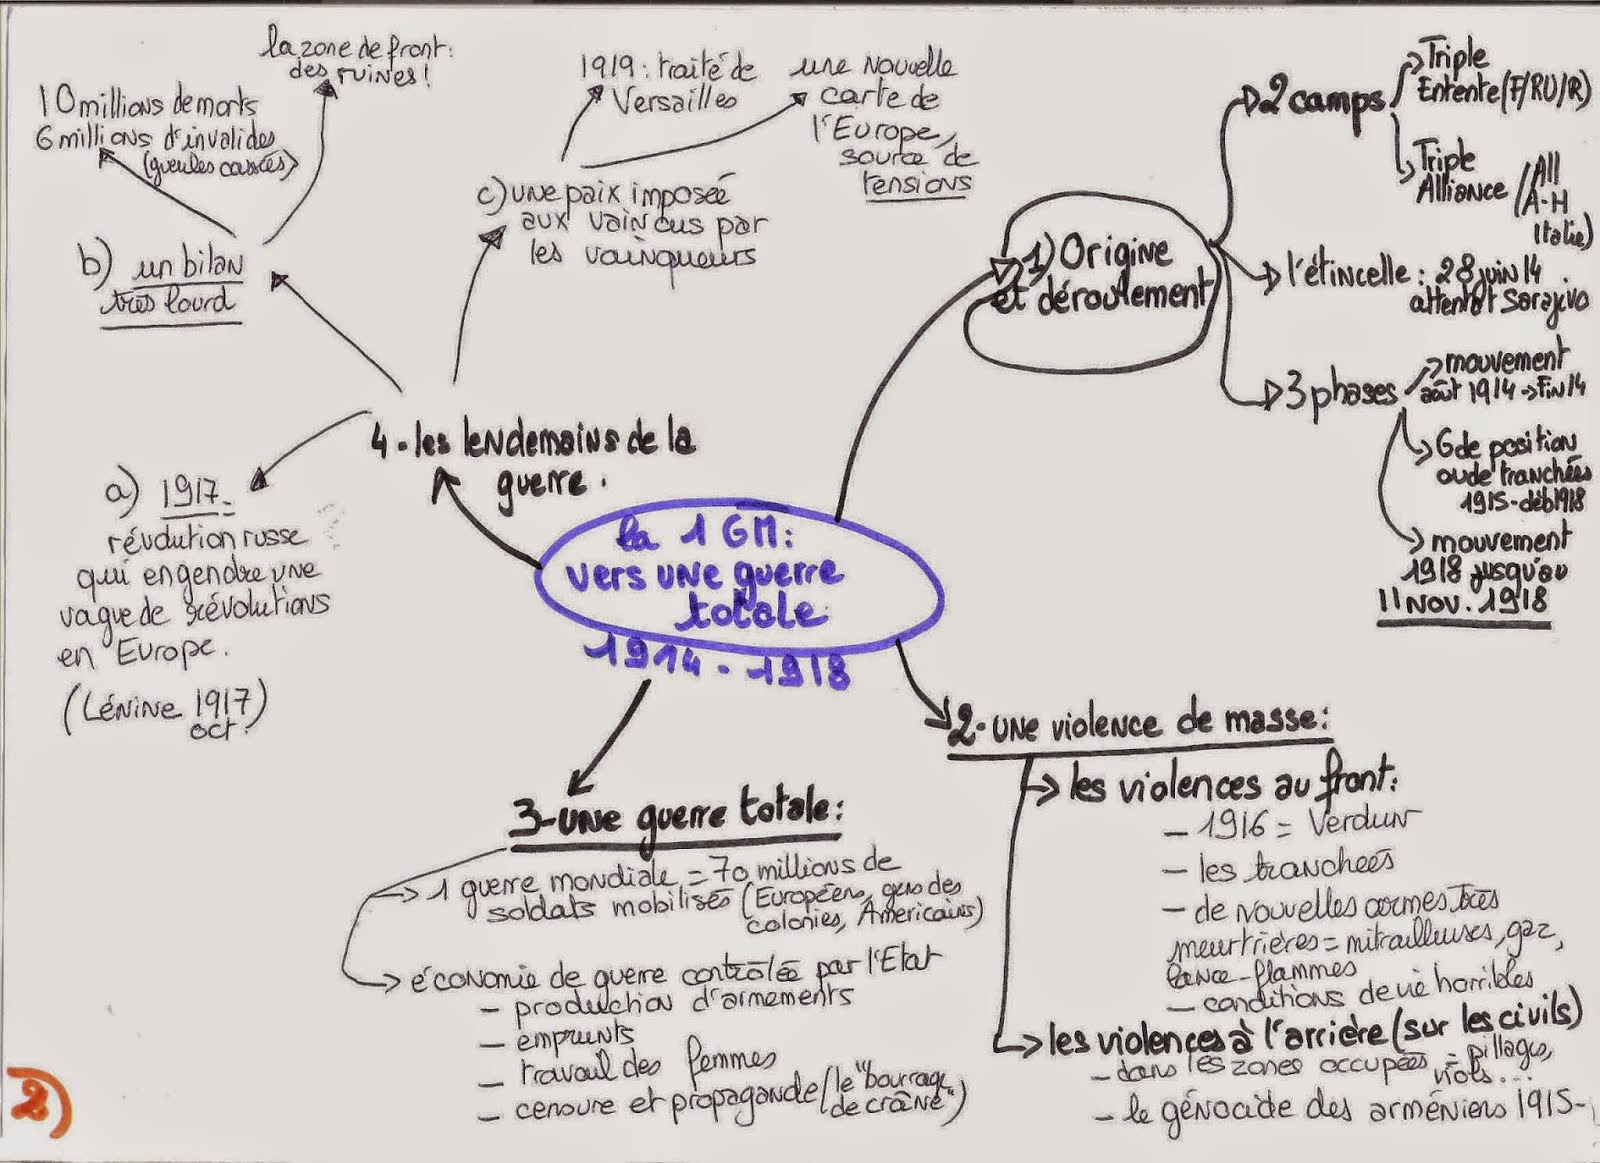 la 1 GM:
vers une guerre
totale
1914-1918
1) Origine
et déroulement
2 camps
Triple
Entente (F/RU/R)
Triple
Alliance (All
A-H
Italie)
l'étincelle : 28 juin 14
attentat Sarajevo
3 phases
mouvement
août 1914 -> Fin 14
G de position
ou de tranchées
1915-déb 1918
mouvement
1918 jusqu'au
11 Nov. 1918
2- une violence de masse:
les violences au front:
- 1916 = Verdun
- les tranchées
- de nouvelles armes très
meurtrières = mitrailleuses, gaz,
lance-flammes
- conditions de vie horribles
les violences à l'arrière (sur les civils)
- dans les zones occupées = pillages,
viols...
- le génocide des arméniens 1915-
3- une guerre totale:
1 guerre mondiale = 70 millions de
soldats mobilisés (Européens, gens des
colonies, Américains)
économie de guerre contrôlée par l'Etat
- production d'armements
- emprunts
- travail des femmes
- censure et propagande (le "bourrage
de crâne")
4- les lendemains de la
guerre.
a) 1917-
révolution russe
qui engendre une
vague de révolutions
en Europe.
(Lénine 1917)
oct
b) un bilan
très lourd
10 millions de morts
6 millions d'invalides
(gueules cassées)
la zone de front:
des ruines!
c) une paix imposée
aux vaincus par
les vainqueurs
1919: traité de
Versailles
une nouvelle
carte de
l'Europe,
source de
tensions
2)